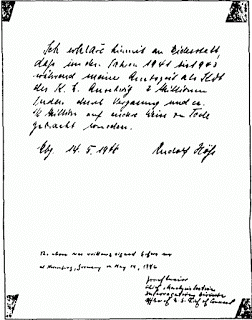 Ich erkläre hiermit an Eidesstatt,
dass in den Jahren 1941 bis 1943
während meiner Amtszeit als Kdt
des K. L. Auschwitz 2 Millionen
Juden durch Vergasung und ca.
½ Million auf andere Weise zu Tode
gebracht wurden.
14. 5. 1946 Rudolf Höß
The above was written & signed before me
at Nurnberg, Germany on May 14, 1946